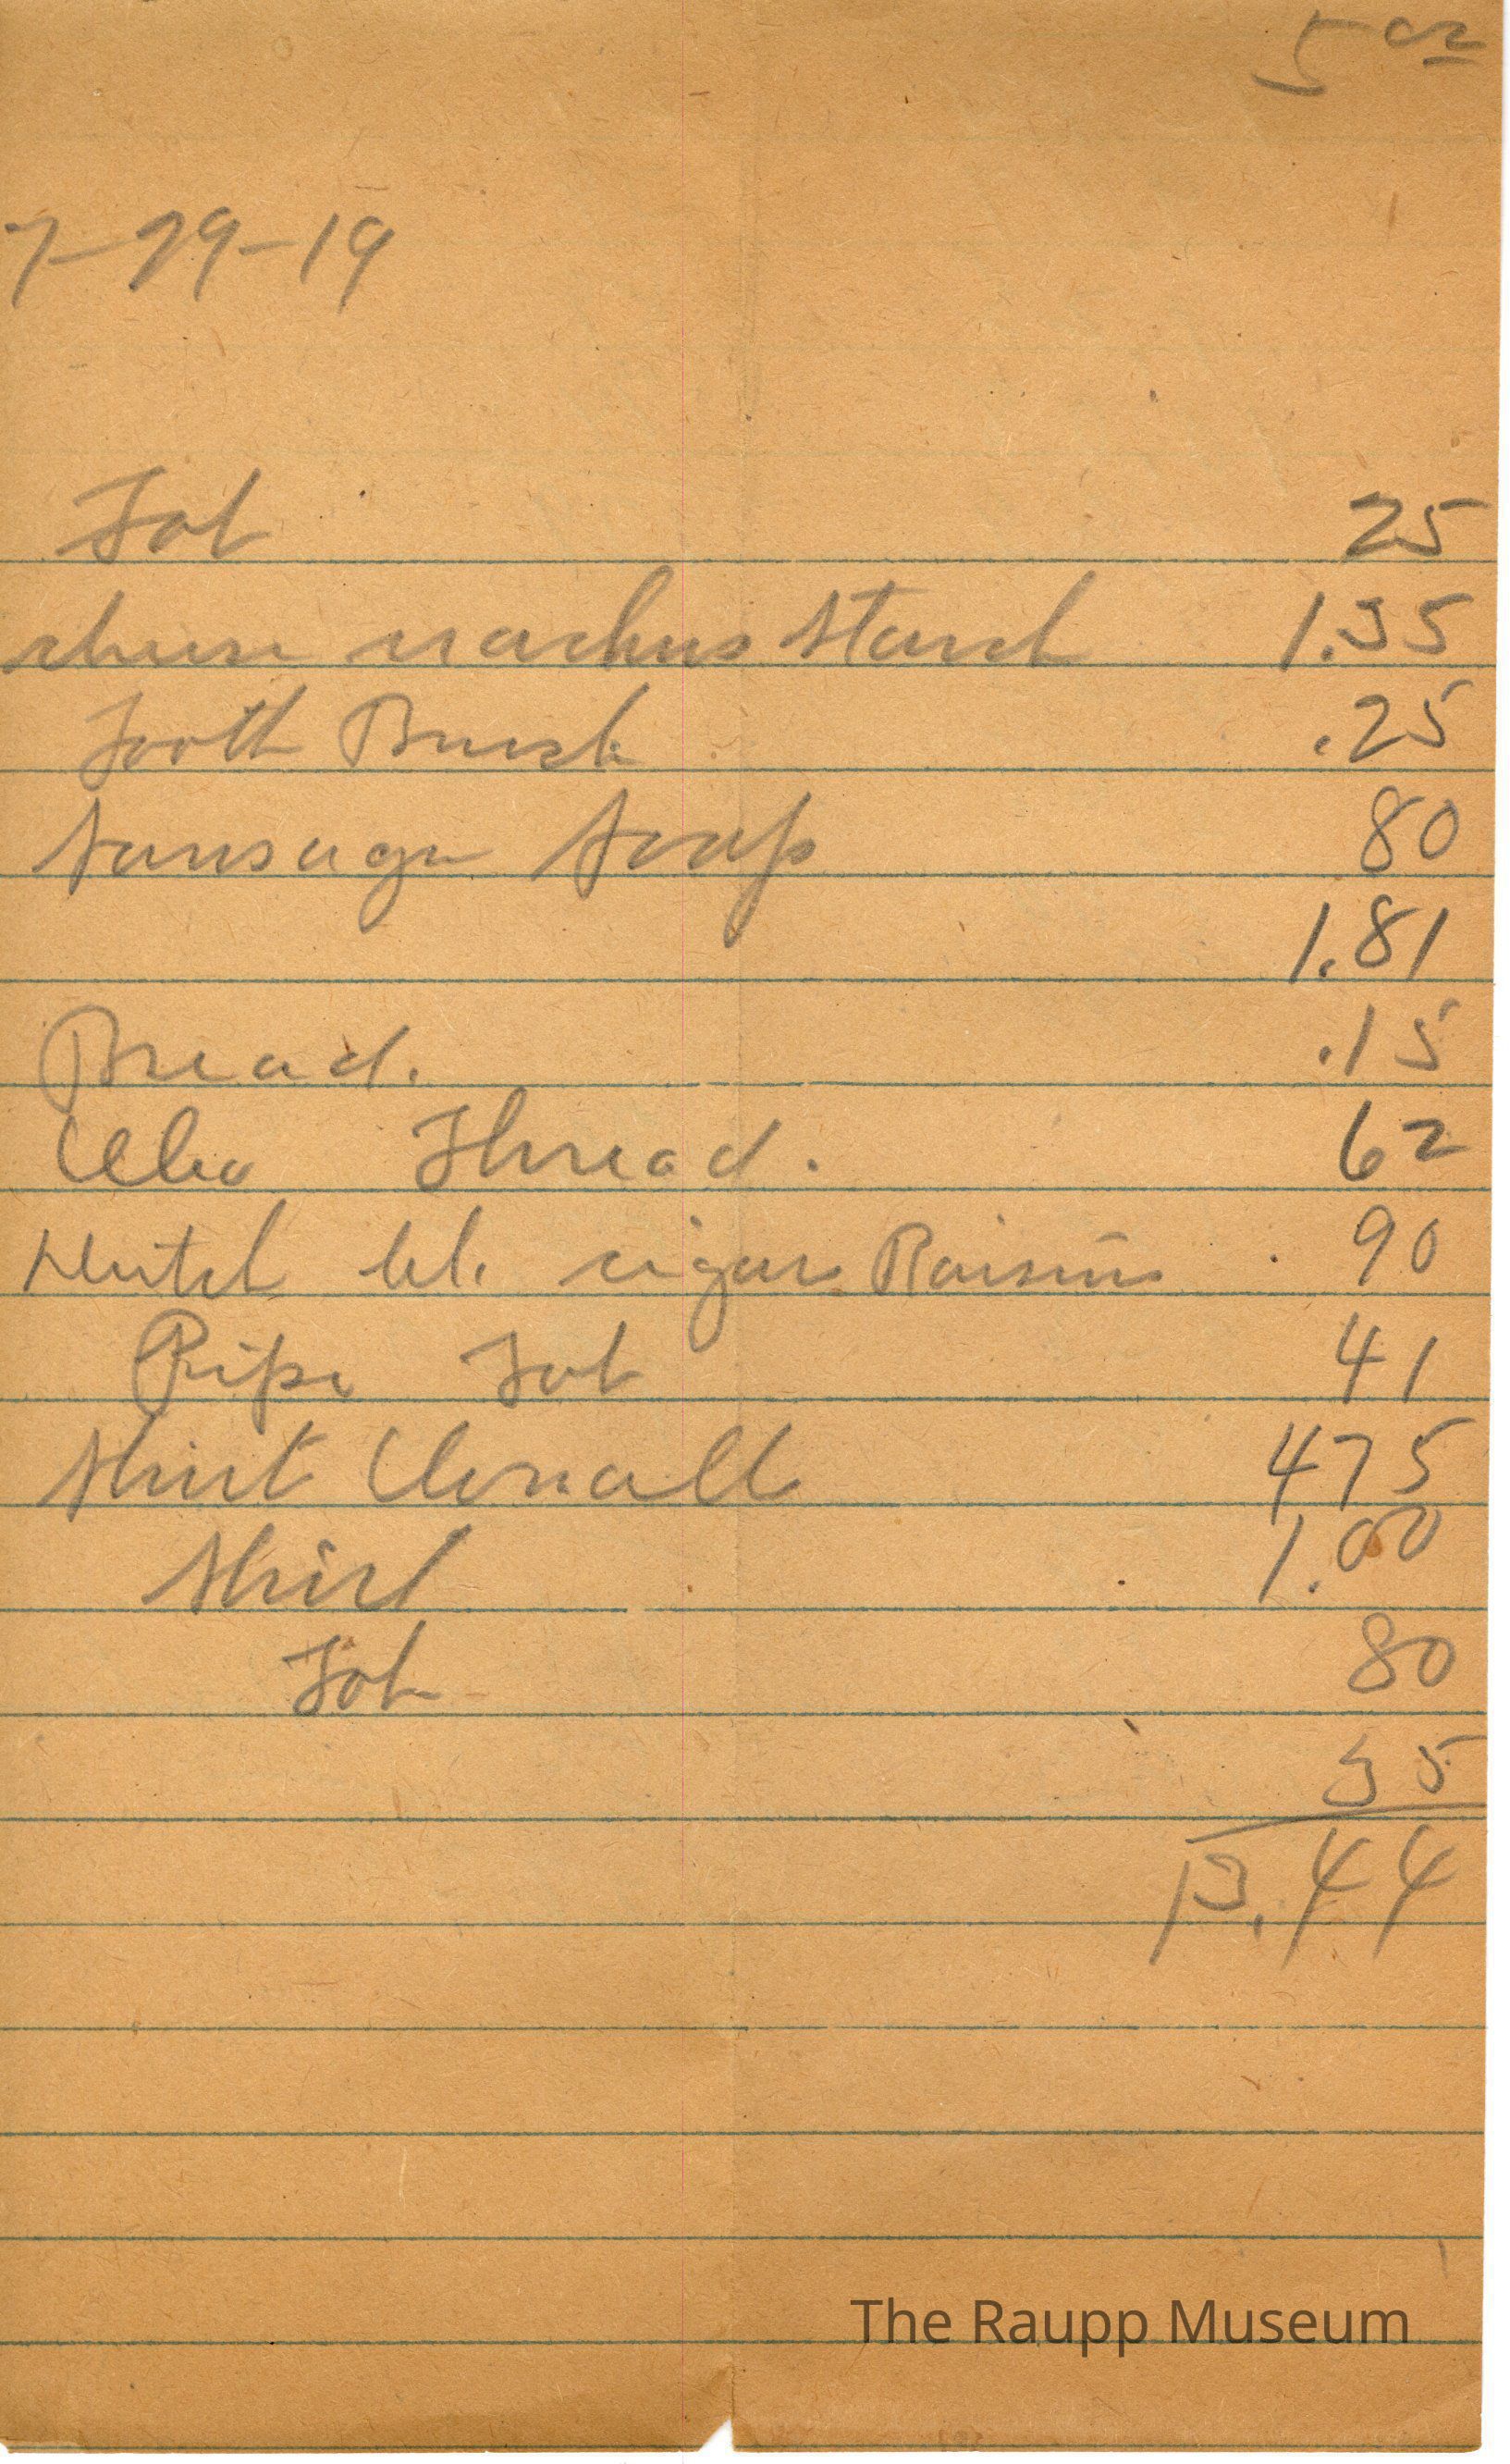 7-29-19
Tob 25
cheese crackers starch 1.35
Tooth Brush .25
Sausage Soap 80
1.81
Bread. .15
Oleo Thread. 62
Dutch cigar Raisins 90
Pipe Tob 41
Shirt Overall 475
Shirt 1.00
Tob 80
35
13.44
The Raupp Museum